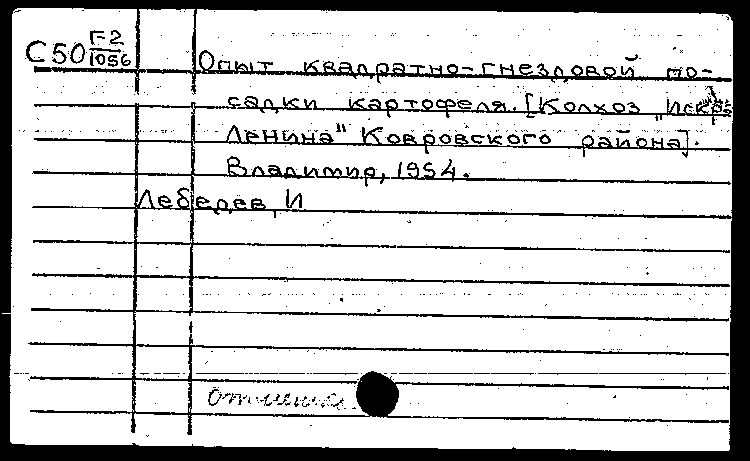 С50 Г-2/1056
Опыт квадратно-гнездовой по-
садки картофеля. [Колхоз „Искра
Ленина" Ковровского района].
Владимир, 1954.
Лебедев, И